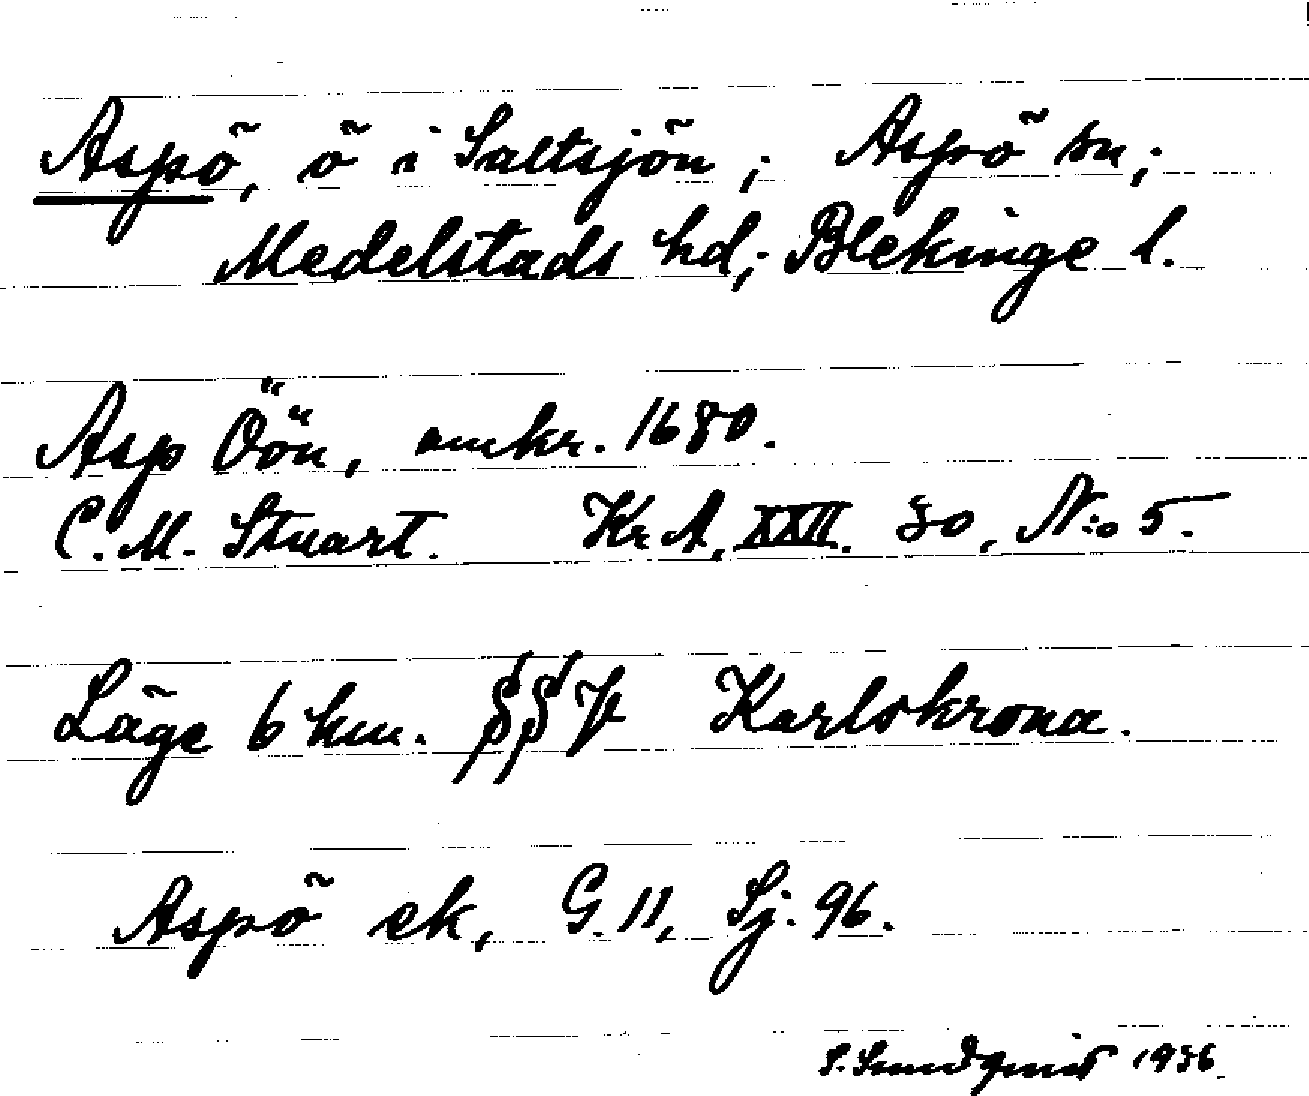 Aspö, ö i Saltsjön; Aspö sn;
Medelstads hd; Blekinge l.
Asp Öön, omkr. 1680.
C. M. Stuart. Kr. A. XXII. 80, N:o 5.
Läge 6 km. SSV Karlskrona.
Aspö ek, G. 11, Sj. 96.
S. Sundquist 1936.